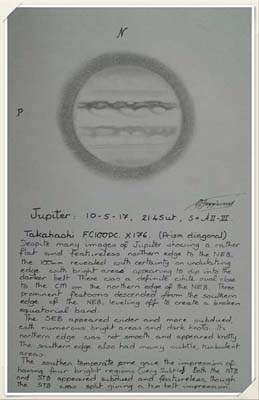 N
P
Jupiter: 10-5-17, 21.45ut, S=AII-III.
Takahashi FC100DC. X176. (Prism diagonal)
Despite many images of Jupiter showing a rather
flat and featureless northern edge to the NEB.
the 100mm revealed with certainty an undulating
edge with bright areas appearing to dip into the
darker belt. There was a definite white oval close
to the CM on the northern edge of the NEB. Three
prominent festoons descended from the southern
edge of the NEB, leveling off to create a broken
equatorial band.
The SEB appeared wider and more subdued,
with numerous bright areas and dark knots. Its
northern edge was not smooth and appeared knotty
The southern edge also had many subtle, turbulent
areas.
The southern temperate zone gave the impression of
having four bright regions (very subtle). Both the NTB
and STB appeared subdued and featureless, though
the STB was split giving a twin belt impression.